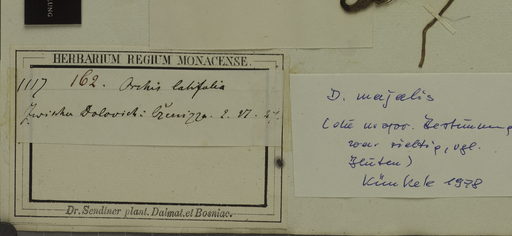 LUNG
HERBARIUM REGIUM MONACENSE.
1117 162. Orchis latifolia
Zwischen Dolovich:
Dr. Sendtner plant. Dalmat. et Bosniac.
D. majalis
(die urspr. Bestimmung
war richtig, vgl.
Blüten)
Künkele 1978